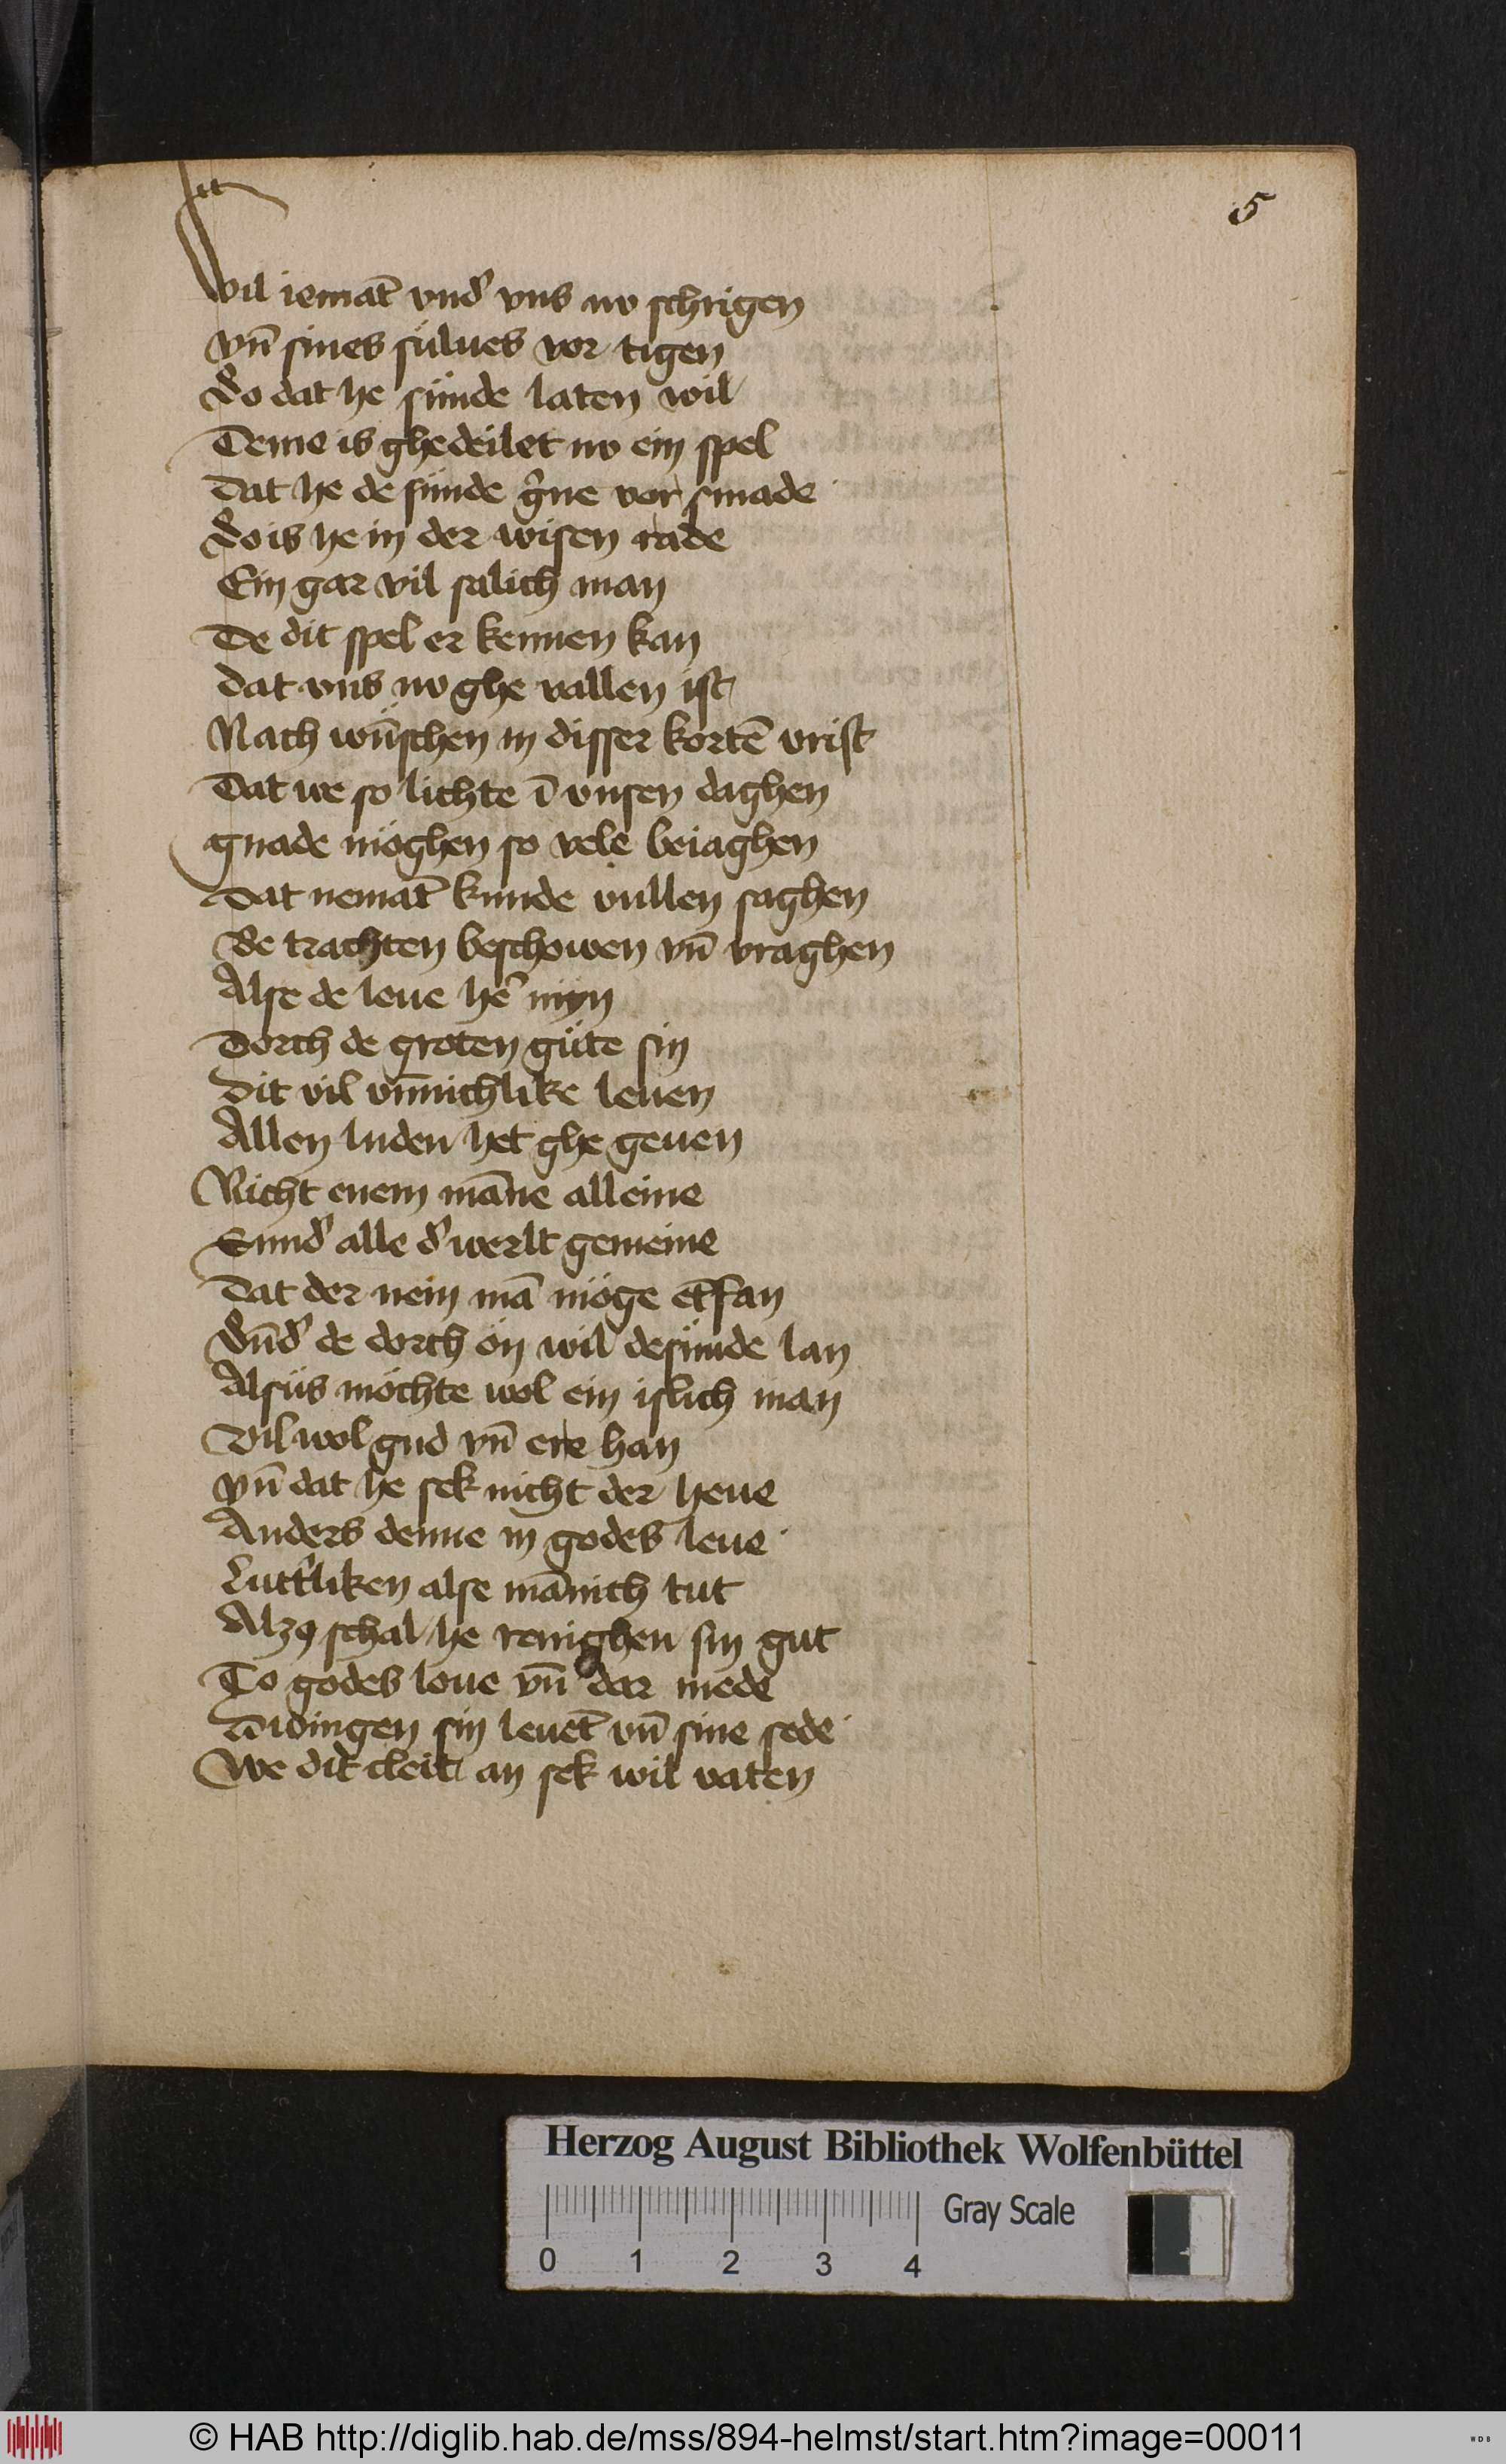 5
Wil iemāt vnd' vns nv schrigen
vn̄ sines sülues vor tigen
So dat he sünde laten wil
Deme is ghedeilet nv ein spel
Dat he de sünde g'ne vor smade
So is he in der wisen rade
Ein gar vil salich man
De dit spel er kennen kan
Dat vns nv ghe vallen ist
Nach wünschen in disser kortē vrist
Dat we so lichte ī vnsen daghen
gnade möghen so vele beiaghen
Dat nemāt kunde vullen saghen
Be trachten beschowen vn̄ vraghen
Alse de leue he' myn
Dorch de groten güte sin
Dit vil vn̄nichlike leuen
Allen luden het ghe geuen
Nicht enem māne alleine
Sund' alle d' werlt gemeine
Dat der nein mā möge ētfan
Sūd' de dorch ön wil de sünde lan
Alsüs möchte wol ein islich man
Vil wol gud vn̄ ere han
vn̄ dat he sek nicht der heue
Anders denne in godes leue
Lutt'liken alse mānich tut
Alzo schal he reinighen sin gut
To godes loue vn̄ dar mede
dwingen sin leuēt vn̄ sine sede
We dit cleit an sek wil vaten
Herzog August Bibliothek Wolfenbüttel
0 1 2 3 4
Gray Scale
© HAB http://diglib.hab.de/mss/894-helmst/start.htm?image=00011